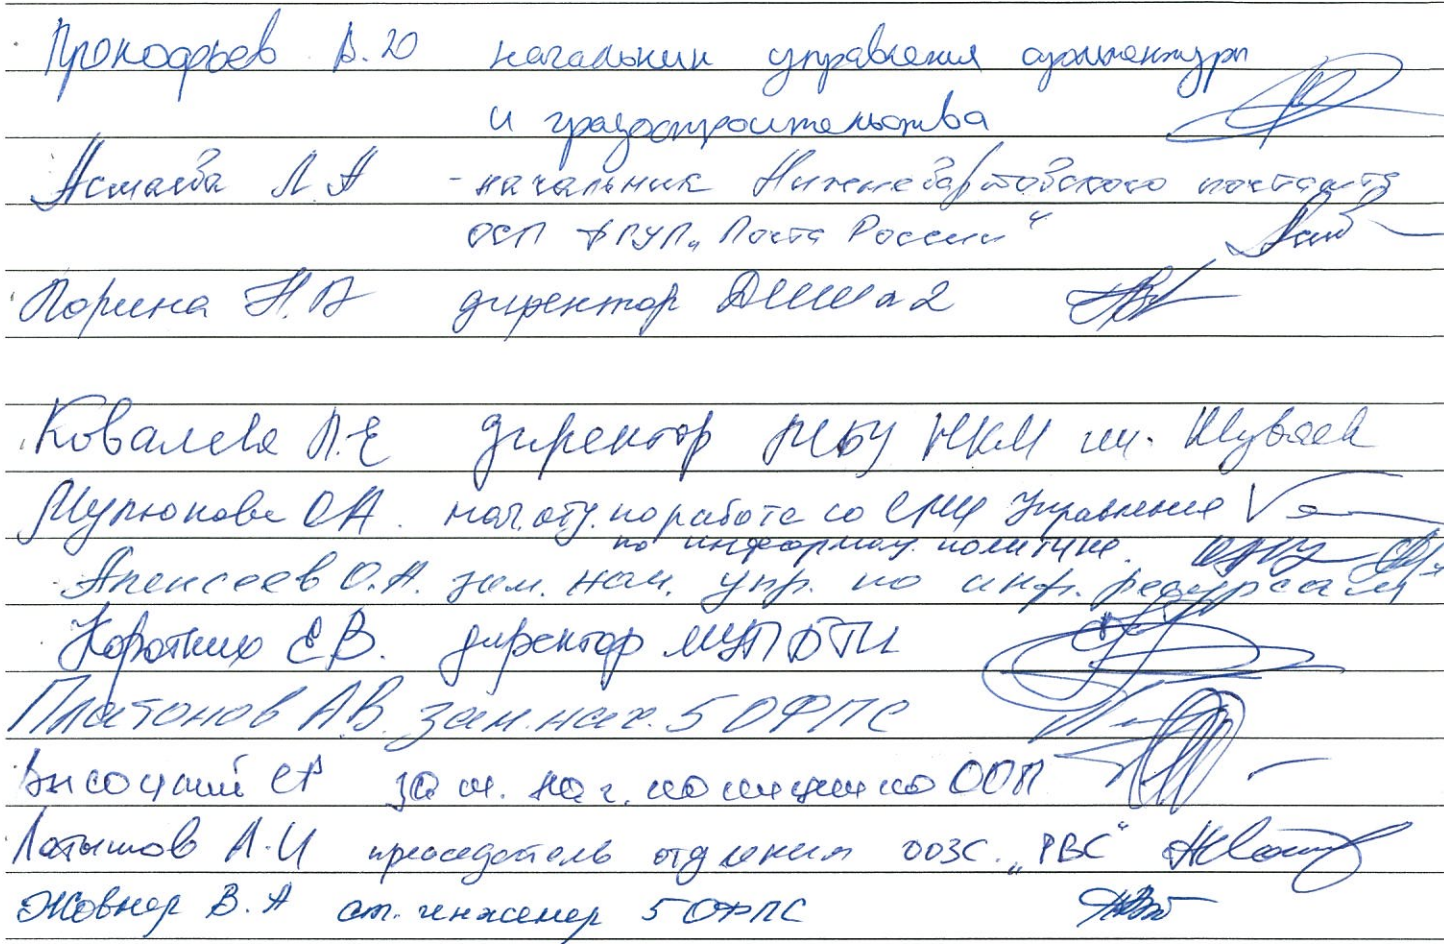 Прокофьев В.Ю начальник управления архитектуры
и градостроительства
Асмаева Л А - начальник Нижневартовского почтамта
ОСП ФГУП „Почта России“
Ларина Н.В директор ДШИ №2
Ковалева Л.Е директор МБУ НКМ им. Шуваев
Мулюкова О.А. нач. отд. по работе со СМИ Управления
по информац. политике.
Алексеев О.А. зам. нач. упр. по инф. ресурсам
Коротких Е В. директор МУП БТИ
Платонов А.В. зам. нач. 5 ОФПС
Высочин СВ зам. нач. полиции по ООП
Латышов А.И председатель отделения ООЗС. „РВС“
Жовнер В.А ст. инженер 5 ОФПС